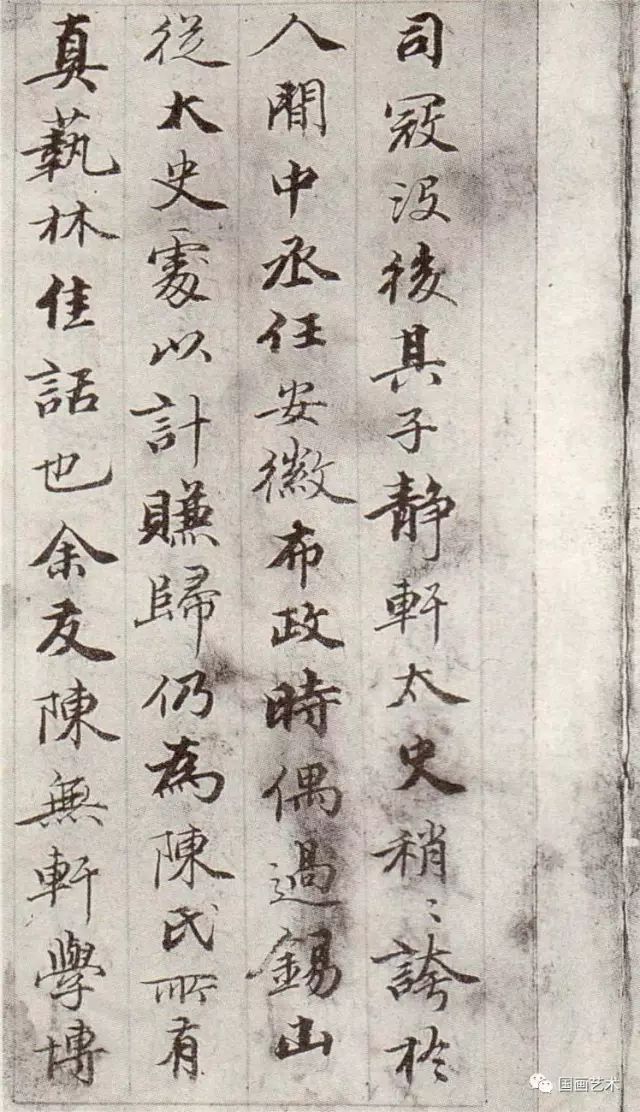 司冦没後其子静軒太史稍〻誇於
人間中丞任安徽布政時偶過錫山
従大史處以計賺歸仍為陳氏所有
真藝林佳話也余友陳無軒學博
国画艺术